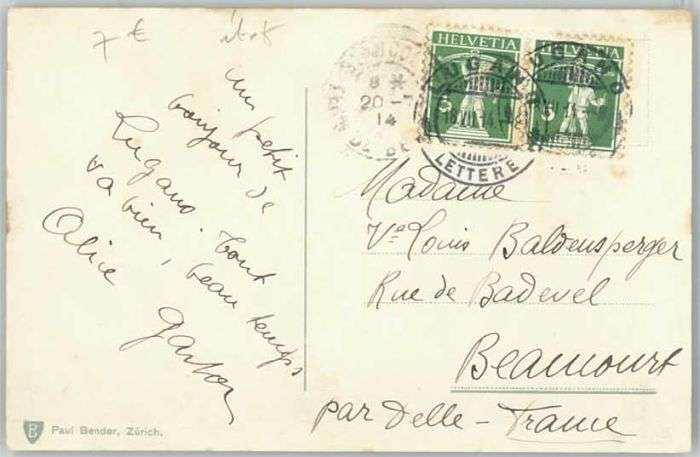 7 €
un petit
bonjour de
Lugano. Tout
va bien, beau temps
Alice Gaston
HELVETIA HELVETIA
5 5
LUGANO LUGANO
18.VII.14
LETTERE
8
20 - 7
14
Madame
Vve Louis Baldensperger
Rue de Badevel
Beaucourt
par Delle - France
B Paul Bender, Zürich.